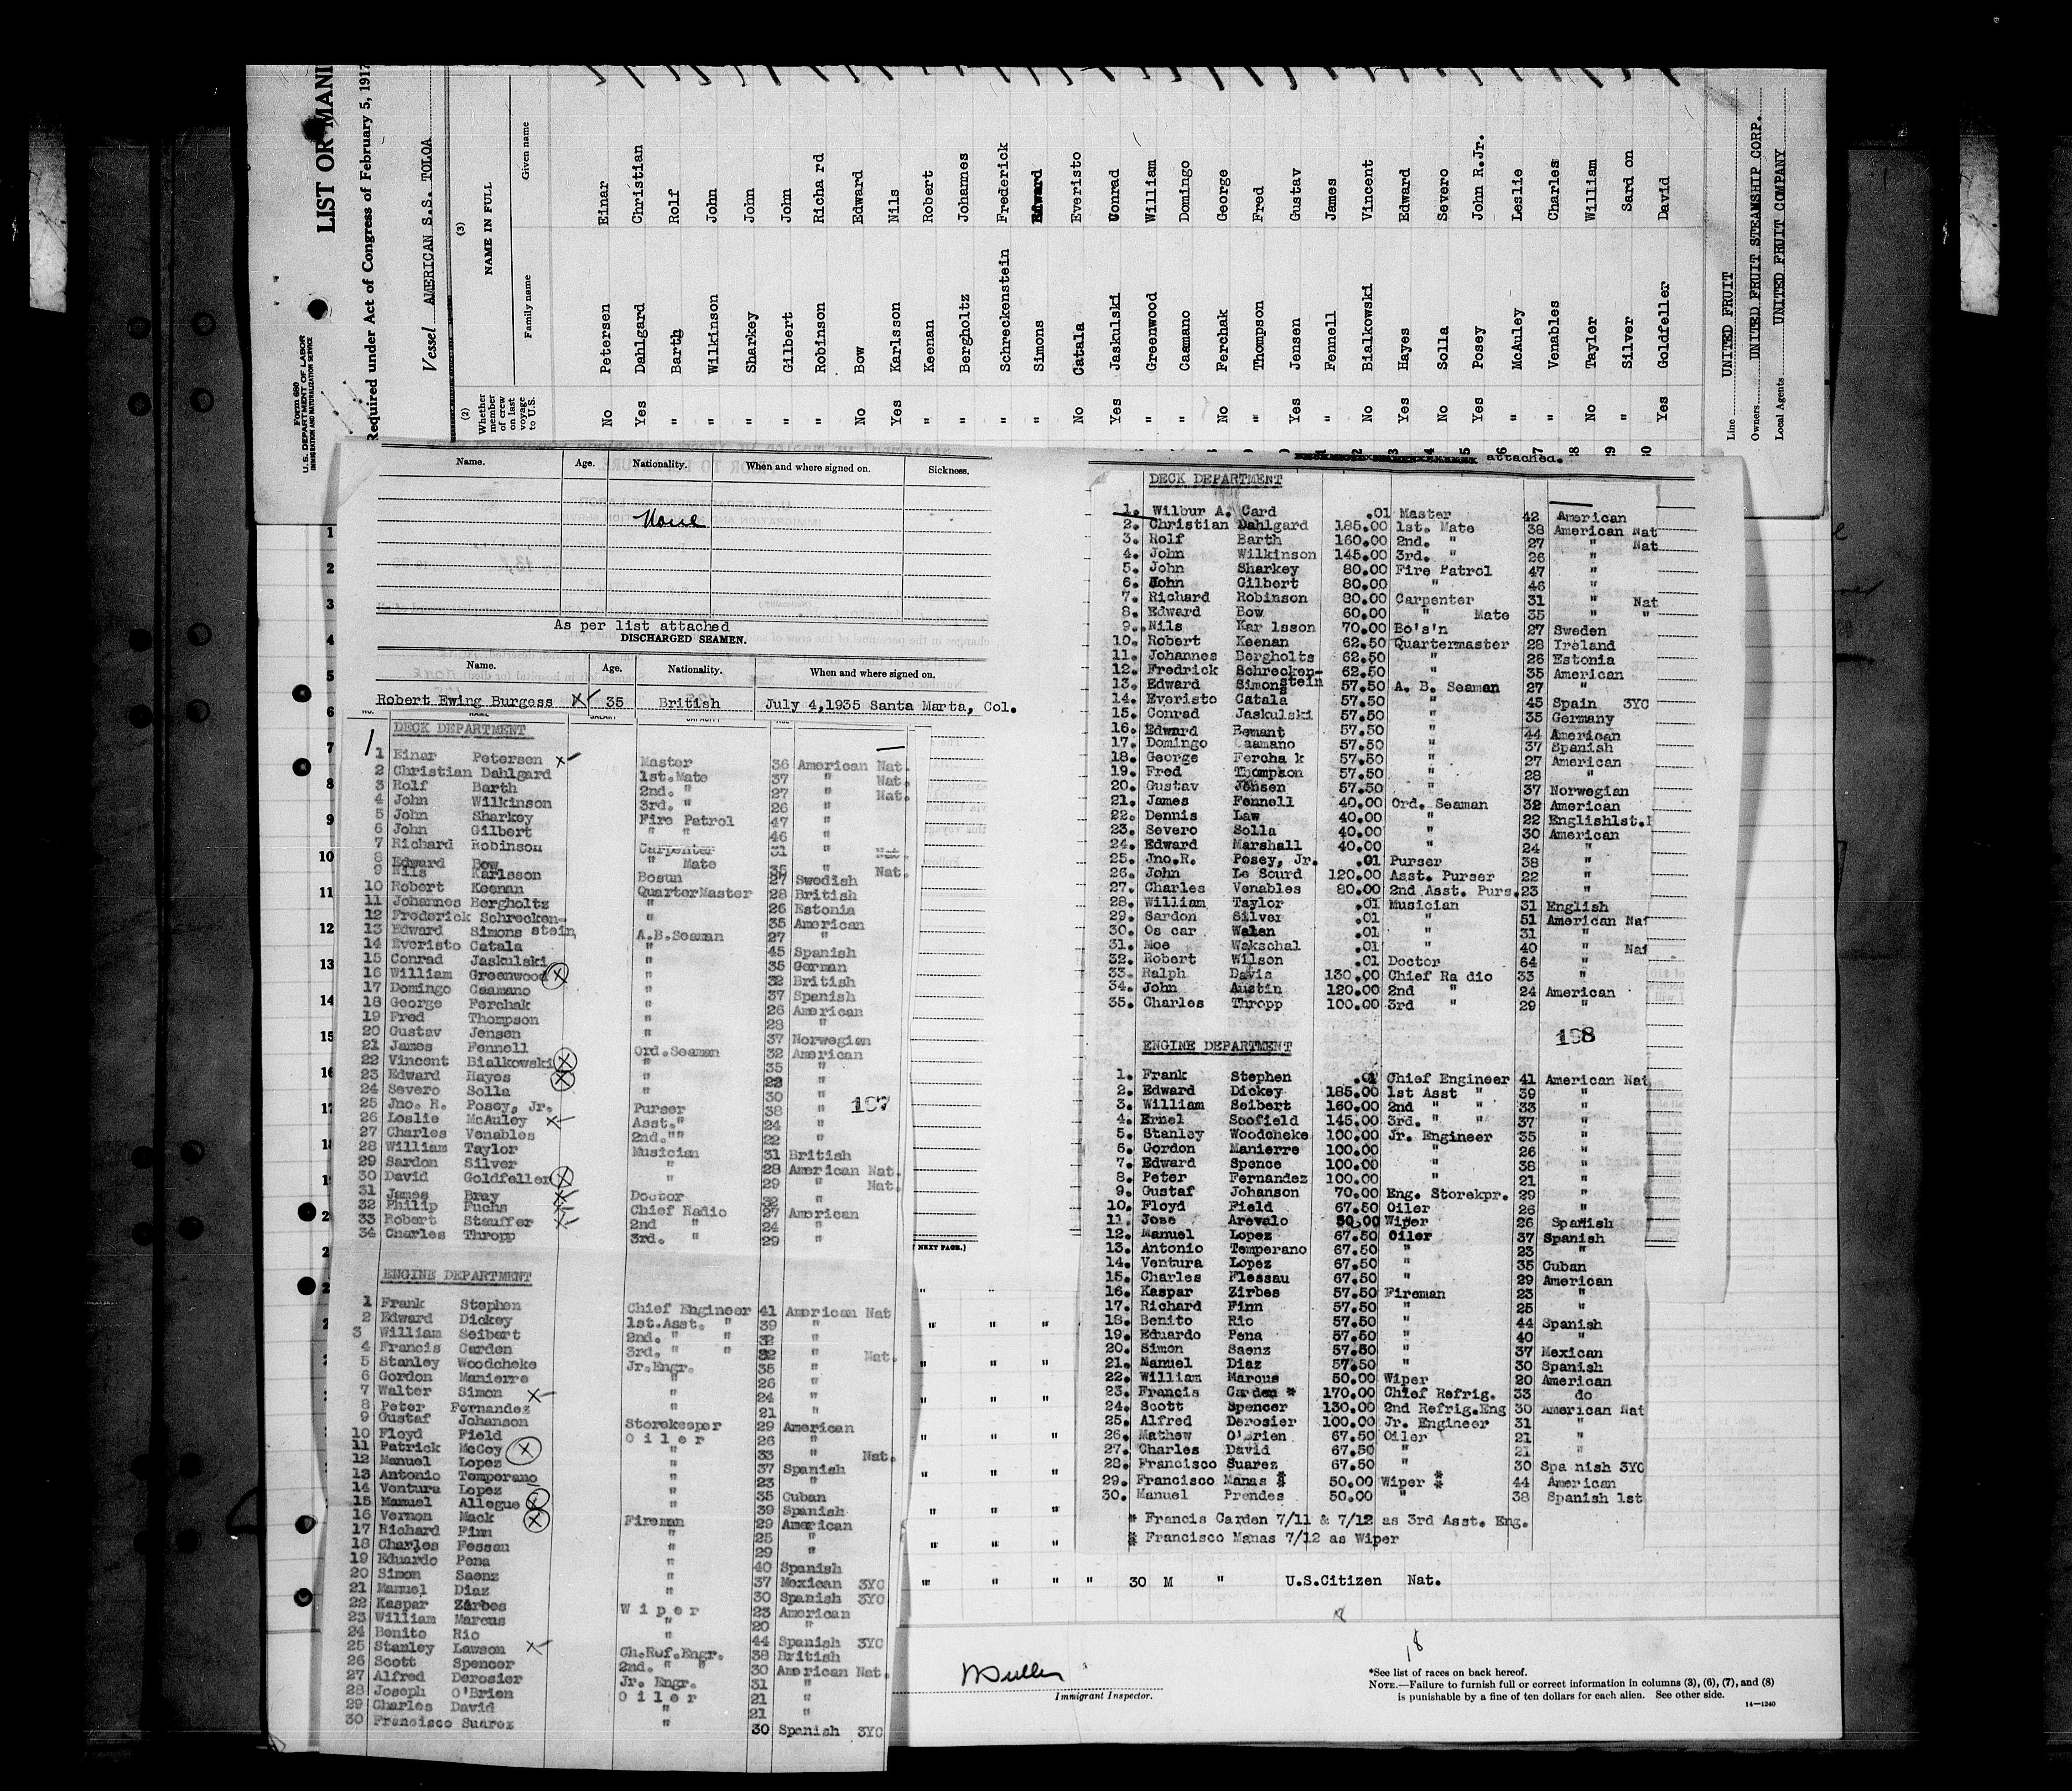 Form 680
U. S. DEPARTMENT OF LABOR
IMMIGRATION AND NATURALIZATION SERVICE
LIST OR MANI
Required under Act of Congress of February 5, 1917
Vessel AMERICAN S.S. TOLOA
(2) (3)
Whether member of crew on last voyage to U.S. NAME IN FULL
Family name Given name
No Petersen Einar
Yes Dahlgard Christian
" Barth Rolf
" Wilkinson John
" Sharkey John
" Gilbert John
" Robinson Richa rd
No Bow Edward
Yes Karlsson Nils
" Keenan Robert
" Bergholtz Johannes
" Schreckenstein Frederick
" Simons Edward
No Catala Everisto
Yes Jaskulski Conrad
" Greenwood William
" Caamano Domingo
No Ferchak George
" Thompson Fred
Yes Jensen Gustav
" Fennell James
No Bialkowski Vincent
Yes Hayes Edward
No Solla Severo
Yes Posey John R.Jr.
" McAuley Leslie
" Venables Charles
No Taylor William
" Silver Sard on
Yes Goldfeller David
Line UNITED FRUIT
Owners UNITED FRUIT STEAMSHIP CORP.
Local Agents UNITED FRUIT COMPANY
Name. Age. Nationality. When and where signed on. Sickness.
None
As per list attached
DISCHARGED SEAMEN.
Name. Age. Nationality. When and where signed on.
Robert Ewing Burgess X 35 British July 4,1935 Santa Marta, Col.
DECK DEPARTMENT
1 Einar Petersen x Master 36 American Nat.
2 Christian Dahlgard 1st.Mate 37 " Nat.
3 Rolf Barth 2nd. " 27 " Nat.
4 John Wilkinson 3rd. " 26 "
5 John Sharkey Fire Patrol 47 "
6 John Gilbert " " 46 "
7 Richard Robinson Carpenter 31 " Nat.
8 Edward Bow " Mate 35 " Nat.
9 Nils Karlsson Bosun 27 Swedish
10 Robert Keenan QuarterMaster 28 British
11 Johannes Bergholtz " 26 Estonia
12 Frederick Schrecken- " 35 American
13 Edward Simons stein, A.B.Seaman 27 "
14 Everisto Catala " 45 Spanish
15 Conrad Jaskulski " 35 German
16 William Greenwood X " 32 British
17 Domingo Caamano " 37 Spanish
18 George Ferchak " 26 American
19 Fred Thompson " 28 "
20 Gustav Jensen " 37 Norwegian
21 James Fennell Ord.Seaman 32 American
22 Vincent Bialkowski X " 35 "
23 Edward Hayes X " 22 "
24 Severo Solla " 30 "
25 Jno. R. Posey, Jr. Purser 38 "
26 Leslie McAuley x Asst." 24 "
27 Charles Venables 2nd."" 22 "
28 William Taylor Musician 31 British
29 Sardon Silver " 28 American Nat.
30 David Goldfeller X " 29 " Nat.
31 James Bray X Doctor 32 "
32 Philip Fuchs X Chief Radio 27 American
33 Robert Stauffer X 2nd " 24 "
34 Charles Thropp 3rd. " 29 "
197
ENGINE DEPARTMENT
1 Frank Stephen Chief Engineer 41 American Nat
2 Edward Dickey 1st.Asst. " 39 "
3 William Seibert 2nd. " " 32 "
4 Francis Carden 3rd. " " 32 " Nat.
5 Stanley Woodcheke Jr.Engr. 35 "
6 Gordon Manierre " 26 "
7 Walter Simon X " 24 "
8 Peter Fernandez " 21 "
9 Gustaf Johanson Storekeeper 29 American
10 Floyd Field O i l e r 26 "
11 Patrick McCoy X " 33 " Nat.
12 Manuel Lopez " 37 Spanish
13 Antonio Temperano " 23 "
14 Ventura Lopez " 35 Cuban
15 Manuel Allegue X " 39 Spanish
16 Vernon Mack X Fireman 29 American
17 Richard Finn " 25 "
18 Charles Fessau " 29 "
19 Eduardo Pena " 40 Spanish
20 Simon Saenz " 37 Mexican 3YC
21 Manuel Diaz " 30 Spanish 3YC
22 Kaspar Zirbes W i p e r 23 American
23 William Marcus " 20 "
24 Benito Rio " 44 Spanish 3YC
25 Stanley Lawson X Ch.Ref.Engr. 38 British
26 Scott Spencer 2nd. " " 30 American Nat.
27 Alfred Derosier Jr. Engr. 31 "
28 Joseph O'Brien O i l e r 21 "
29 Charles David " 21 "
30 Francisco Suarez " 30 Spanish 3YC
attached.
DECK DEPARTMENT
1. Wilbur A. Card .01 Master 42 American
2. Christian Dahlgard 185.00 1st. Mate 38 American Nat
3. Rolf Barth 160.00 2nd. " 27 " Nat
4. John Wilkinson 145.00 3rd. " 26 "
5. John Sharkey 80.00 Fire Patrol 47 "
6. John Gilbert 80.00 " 46 "
7. Richard Robinson 80.00 Carpenter 31 " Nat
8. Edward Bow 60.00 " Mate 35 " "
9. Nils Kar lsson 70.00 Bo's'n 27 Sweden
10. Robert Keenan 62.50 Quartermaster 28 Ireland
11. Johannes Bergholts 62.50 " 26 Estonia
12. Fredrick Schrecken- 62.50 " 35 American
13. Edward Simons stein 57.50 A. B. Seaman 27 "
14. Everisto Catala 57.50 " 45 Spain 3YC
15. Conrad Jaskulski 57.50 " 35 Germany
16. Edward Bemant 57.50 " 44 American
17. Domingo Caamano 57.50 " 37 Spanish
18. George Fercha k 57.50 " 27 American
19. Fred Thompson 57.50 " 28 "
20. Gustav Jensen 57.50 " 37 Norwegian
21. James Fennell 40.00 Ord. Seaman 32 American
22. Dennis Law 40.00 " 22 English1st.
23. Severo Solla 40.00 " 30 American
24. Edward Marshall 40.00 " 24 "
25. Jno.R. Posey, Jr. .01 Purser 38 "
26. John Le Sourd 120.00 Asst. Purser 22 "
27. Charles Venables 80.00 2nd Asst. Purs. 23 "
28. William Taylor .01 Musician 31 English
29. Sardon Silver .01 " 51 American Nat
30. Os car Walen .01 " 31 "
31. Moe Wakschal .01 " 40 " Nat
32. Robert Wilson .01 Doctor 64 "
33. Ralph Davis 130.00 Chief Ra dio 33 "
34. John Austin 120.00 2nd " 24 American
35. Charles Thropp 100.00 3rd " 29 "
198
ENGINE DEPARTMENT
1. Frank Stephen .01 Chief Engineer 41 American Nat
2. Edward Dickey 185.00 1st Asst " 39 "
3. William Seibert 160.00 2nd " " 33 "
4. Ernel Scofield 145.00 3rd. " " 37 "
5. Stanley Woodcheke 100.00 Jr. Engineer 35 "
6. Gordon Manierre 100.00 " 26 "
7. Edward Spence 100.00 " 38 "
8. Peter Fernandez 100.00 " 21 "
9. Gustaf Johanson 70.00 Eng. Storekpr. 29 "
10. Floyd Field 67.50 Oiler 26 "
11. Jose Arevalo 50.00 Wiper 26 Spanish
12. Manuel Lopez 67.50 Oiler 37 Spanish
13. Antonio Temperano 67.50 " 23 "
14. Ventura Lopez 67.50 " 35 Cuban
15. Charles Flessau 67.50 " 29 American
16. Kaspar Zirbes 57.50 Fireman 23 "
17. Richard Finn 57.50 " 25 "
18. Benito Rio 57.50 " 44 Spanish
19. Eduardo Pena 57.50 " 40 "
20. Simon Saenz 57.50 " 37 Mexican
21. Manuel Diaz 57.50 " 30 Spanish
22. William Marcus 50.00 Wiper 20 American
23. Francis Carden * 170.00 Chief Refrig. 33 do
24. Scott Spencer 130.00 2nd Refrig.Eng 30 American Nat
25. Alfred Derosier 100.00 Jr. Engineer 31 "
26. Mathew O'Brien 67.50 Oiler 21 "
27. Charles David 67.50 " 21 "
28. Francisco Suarez 67.50 " 30 Spa nish 3YC
29. Francisco Manas * 50.00 Wiper * 44 American
30. Manuel Prendes 50.00 " 38 Spanish 1st
* Francis Carden 7/11 & 7/12 as 3rd Asst. Eng.
* Francisco Manas 7/12 as Wiper
" " " " 30 M " U.S.Citizen Nat.
( NEXT PAGE.)
Immigrant Inspector.
18
*See list of races on back hereof.
NOTE.—Failure to furnish full or correct information in columns (3), (6), (7), and (8)
is punishable by a fine of ten dollars for each alien. See other side.
14—1240